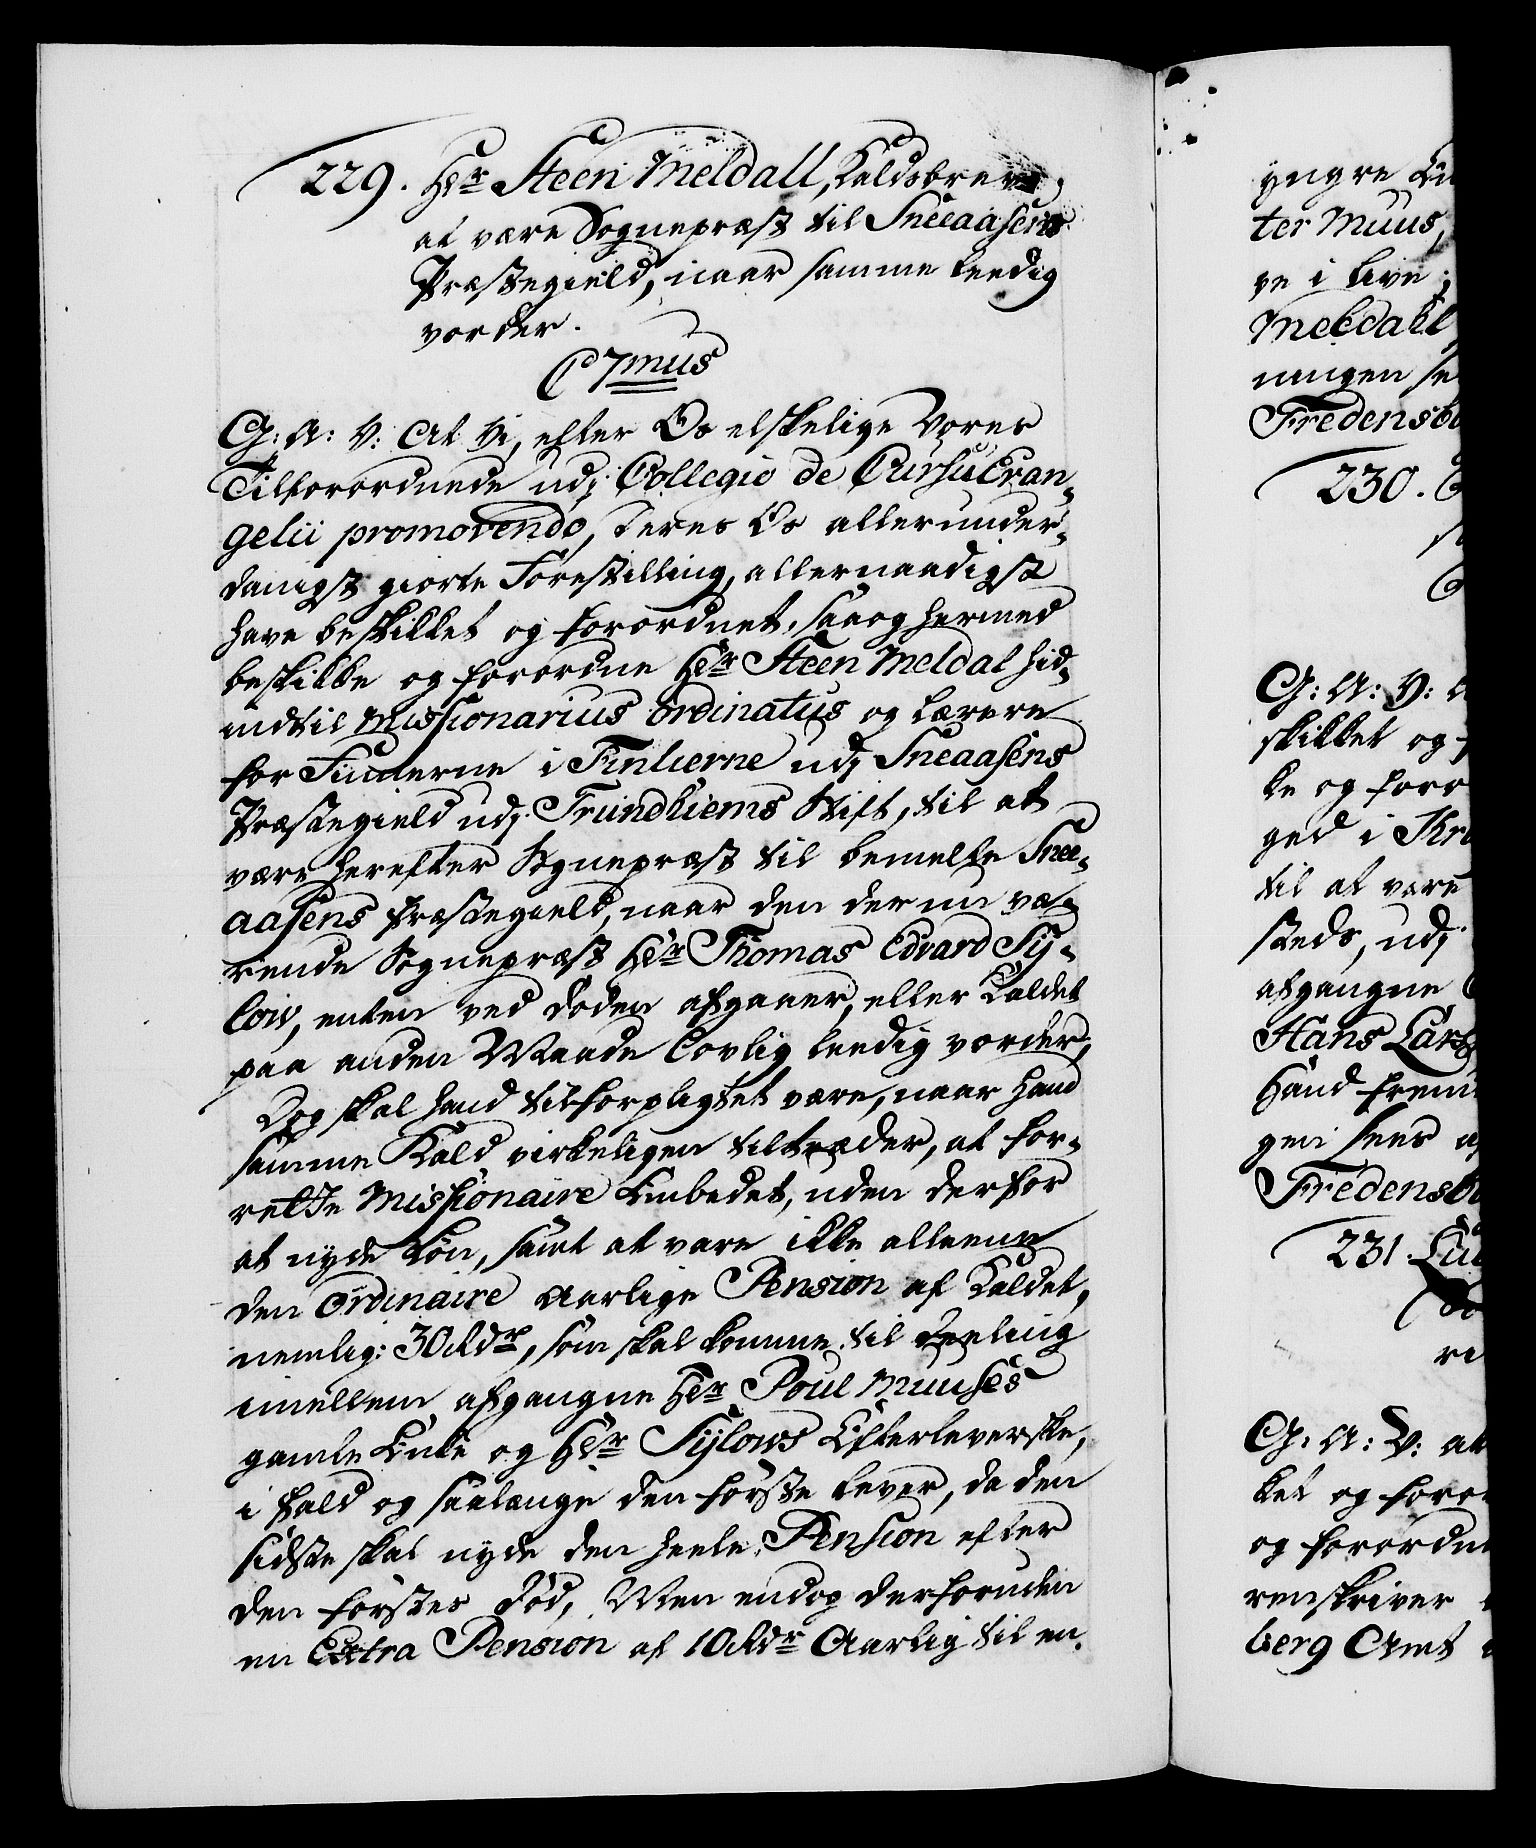 229. Hr Steen Meldall, Kaldsbrev,
at være Sognepræst til Sneeaasens
Præstegield, naar samme leedig
vorder.
C 7mus
G: A: V: At Vi, efter Os elskelige Vores
Tilforordnede udj Collegio de Cursu Evan-
gelii promovendo, deres Os allerunder-
danigst giorte Forestilling, allernaadigst
have beskikket og forordnet, saa og hermed
beskikke og forordne Hr Steen Meldal hid-
indtil Missionarius ordinatus og Lærere
for Finnerne i Finlierne udj Sneaasens
Præstegield udj Trundhiems Stift, til at
være herefter Sognepræst til bemelte Snee-
aasens Præstegield, naar den der nu væ-
rende Sognepræst Hr Thomas Edvard Sy-
low, enten ved Døden afgaaer, eller Kaldet
paa anden Maade lovlig leedig vorder;
Dog skal hand tilforpligtet være, naar hand
samme Kald virkeligen tiltræder, at for-
rette Missionaire Embedet, uden derfor
at nyde Løn, samt at svare ikke alleene
den ordinaire Aarlige Pension af Kaldet,
nemlig: 30 Rdr, som skal komme til deeling
imellem afgangne Hr Poul Muuses
gamle Enke og Hr Sylows Efterleverske,
i fald og saalænge den første lever, da den
sidste skal nyde den heele Pension efter
den førstes Død, Men endog derforuden
en Extra Pension af 10 Rdr Aarlig til en
yngre
ter Muus,
ve i live;
Meldahl
ningen se
Fredensb
230.
G: A: V:
skikket og f
ke og foro
ged i Kri
til at være
steds, udj
afgangne
Hans Lars
Hand frem
gen sees
Fredensb
231.
re
G: A: V: at
ket og foro
og forordn
renskriver
berg Amt